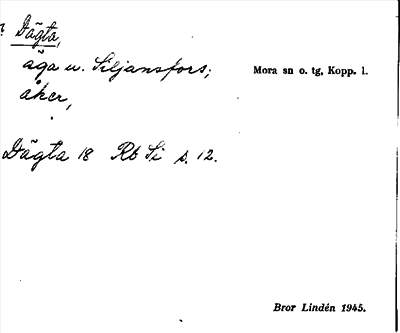 ? Dägta,
äga u. Siljansfors;
Mora sn o. tg, Kopp. l.
åker,
Dägta 18 Rb Si s. 12.
Bror Lindén 1945.